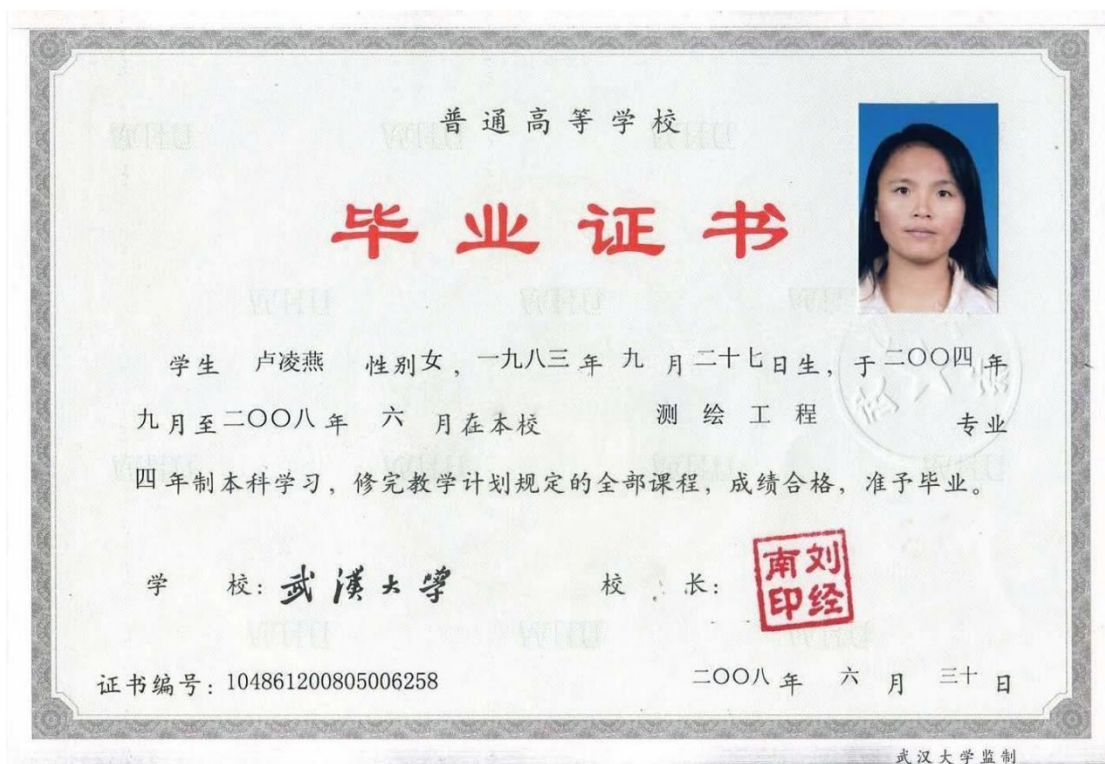 普通高等学校
毕业证书
学生 卢凌燕 性别女，一九八三年 九 月二十七日生，于二〇〇四年
九月至二〇〇八年 六 月在本校 测绘工程 专业
四年制本科学习，修完教学计划规定的全部课程，成绩合格，准予毕业。
学 校：武漢大學 校 长：刘经南印
证书编号：104861200805006258 二〇〇八年 六 月 三十 日
武汉大学监制